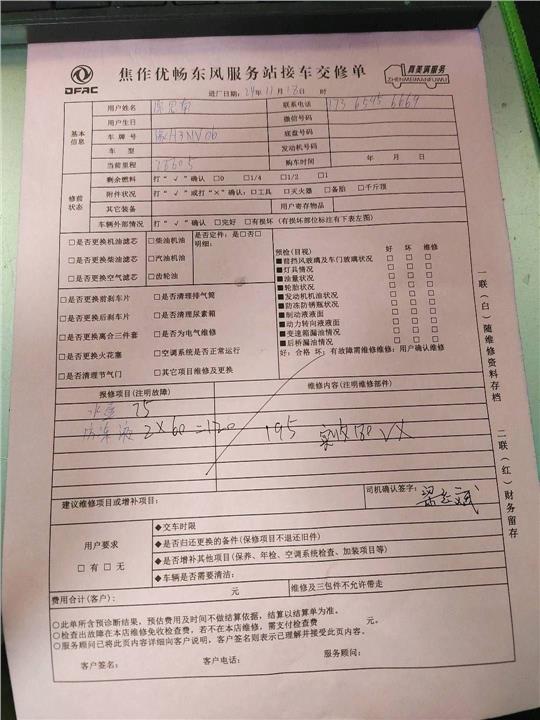 DFAC
焦作优畅东风服务站接车交修单
真美满服务
ZHENMEIMANFUWU
进厂日期: 24年 11月 18日 时
基本信息
用户姓名
联系电话
用户生日
微信号码
车牌号
底盘号码
车型
发动机号码
当前里程
购车时间 年 月 日
修前状态
剩余燃料 打“√”确认 □0 □1/4 □1/2 □1
附件状况 打“√”或打“×”确认:□工具 □灭火器 □备胎 □千斤顶
其它装备 用户寄存物品
车辆外部情况 打“√”确认 □完好 □有损坏(有损坏部位标注有下表左图)
□是否更换机油滤芯 □柴油机油
□是否更换柴油滤芯 □汽油机油
□是否更换空气滤芯 □齿轮油
是否定件: 是□否□
明细:
□是否更换前刹车片 □是否清理排气筒
□是否更换后刹车片 □是否清理尿素箱
□是否更换离合三件套 □是否为电气维修
□是否更换火花塞 □空调系统是否正常运行
□是否清理节气门 □其它项目维修及更换
预检(目视) 好 坏 维修
■前挡风玻璃及车门玻璃状况 □ □ □
■灯具情况 □ □ □
■油量状况 □ □ □
■轮胎状况 □ □ □
■发动机机油情况 □ □ □
■防冻防锈瓶状况 □ □ □
■制动液液面 □ □ □
■动力转向液液面 □ □ □
■变速箱漏油情况 □ □ □
■后桥漏油情况 □ □ □
好:合格 坏:有故障需维修维修:用户确认维修
报修项目(注明故障) 维修内容(注明维修部件)
75
防冻液 2×60=120 195
建议维修项目或增补项目:
司机确认签字:
用户要求
□有 □无
◆交车时限
◆是否归还更换的备件(保修项目不退还旧件)
◆是否增补其他项目(保养、年检、空调系统检查、加装项目等)
◆车辆是否需要清洁:
费用合计(客户): 元 维修及三包件不允许带走
○此单所含预诊断结果,预估费用及时间不做结算依据,结算以结算单为准。
○检查出故障在本店维修免收检查费,若不在本店维修,需支付检查费 元。
○服务顾问已将此页内容详细向客户说明,客户签名则表示已理解并接受此页内容。
客户签名: 客户电话: 服务顾问:
一联(白)随维修资料存档
二联(红)财务留存